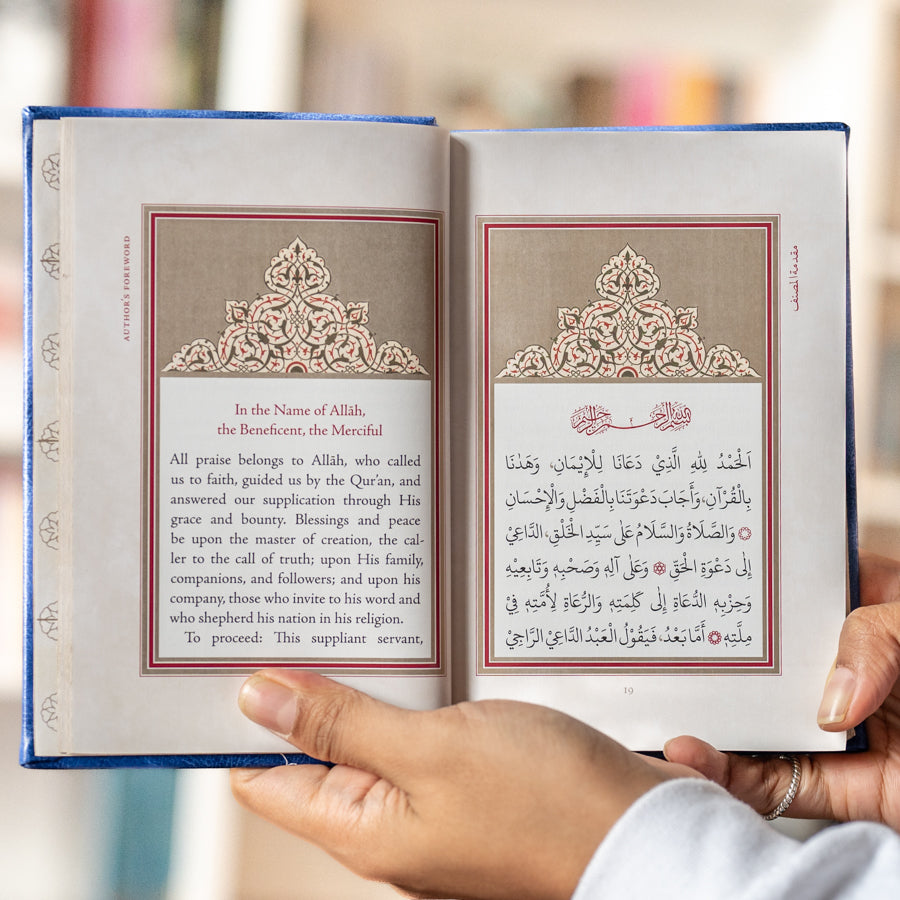 AUTHOR'S FOREWORD
In the Name of Allāh,
the Beneficent, the Merciful
All praise belongs to Allāh, who called
us to faith, guided us by the Qur'an, and
answered our supplication through His
grace and bounty. Blessings and peace
be upon the master of creation, the cal-
ler to the call of truth; upon His family,
companions, and followers; and upon his
company, those who invite to his word and
who shepherd his nation in his religion.
To proceed: This suppliant servant,
مقدمة المصنف
بسم الله الرحمن الرحيم
اَلْحَمْدُ لِلّٰهِ الَّذِيْ دَعَانَا لِلْإِيْمَانِ، وَهَدَانَا
بِالْقُرْآنِ، وَأَجَابَ دَعْوَتَنَا بِالْفَضْلِ وَالْإِحْسَانِ
وَالصَّلَاةُ وَالسَّلَامُ عَلَى سَيِّدِ الْخَلْقِ، الدَّاعِيْ
إِلَى دَعْوَةِ الْحَقِّ وَعَلَى آلِهِ وَصَحْبِهِ وَتَابِعِيْهِ
وَحِزْبِهِ الدُّعَاةِ إِلَى كَلِمَتِهِ وَالرُّعَاةِ لِأُمَّتِهِ فِيْ
مِلَّتِهِ أَمَّا بَعْدُ، فَيَقُوْلُ الْعَبْدُ الدَّاعِيْ الرَّاجِيْ
19